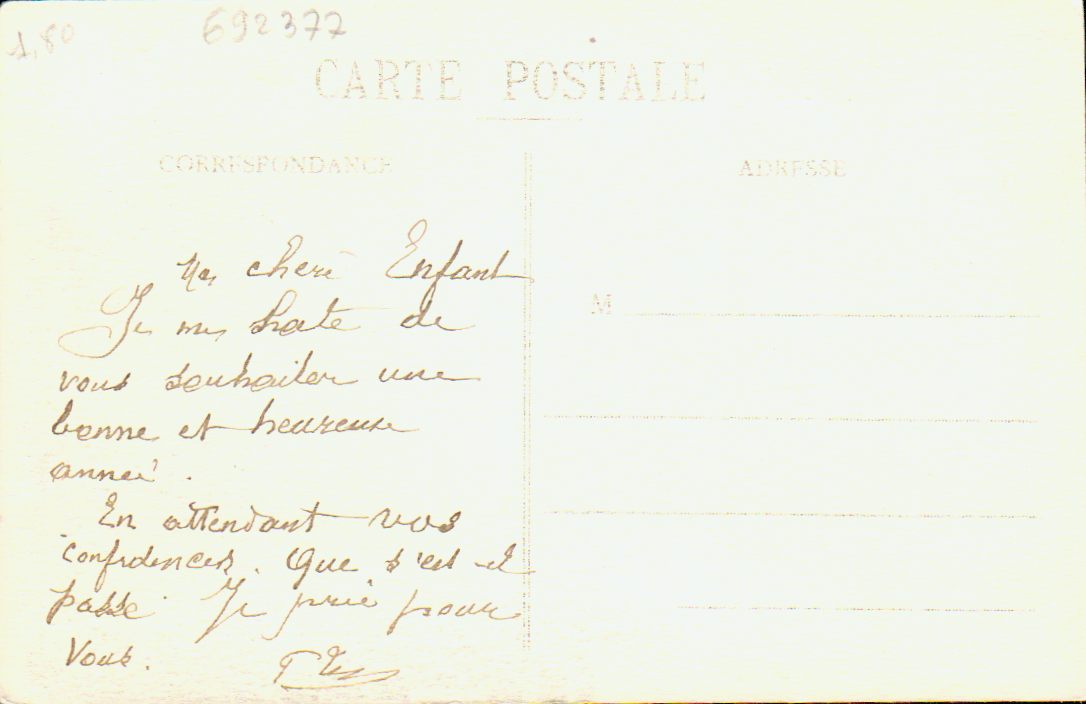 1,80
692377
CARTE POSTALE
CORRESPONDANCE
ADRESSE
Ma cheré Enfant
Je me hate de
vous souhaiter une
bonne et heureuse
anneé.
En attendant vos
confidences. Que s'est-il
passé Je prie pour
Vous.
M